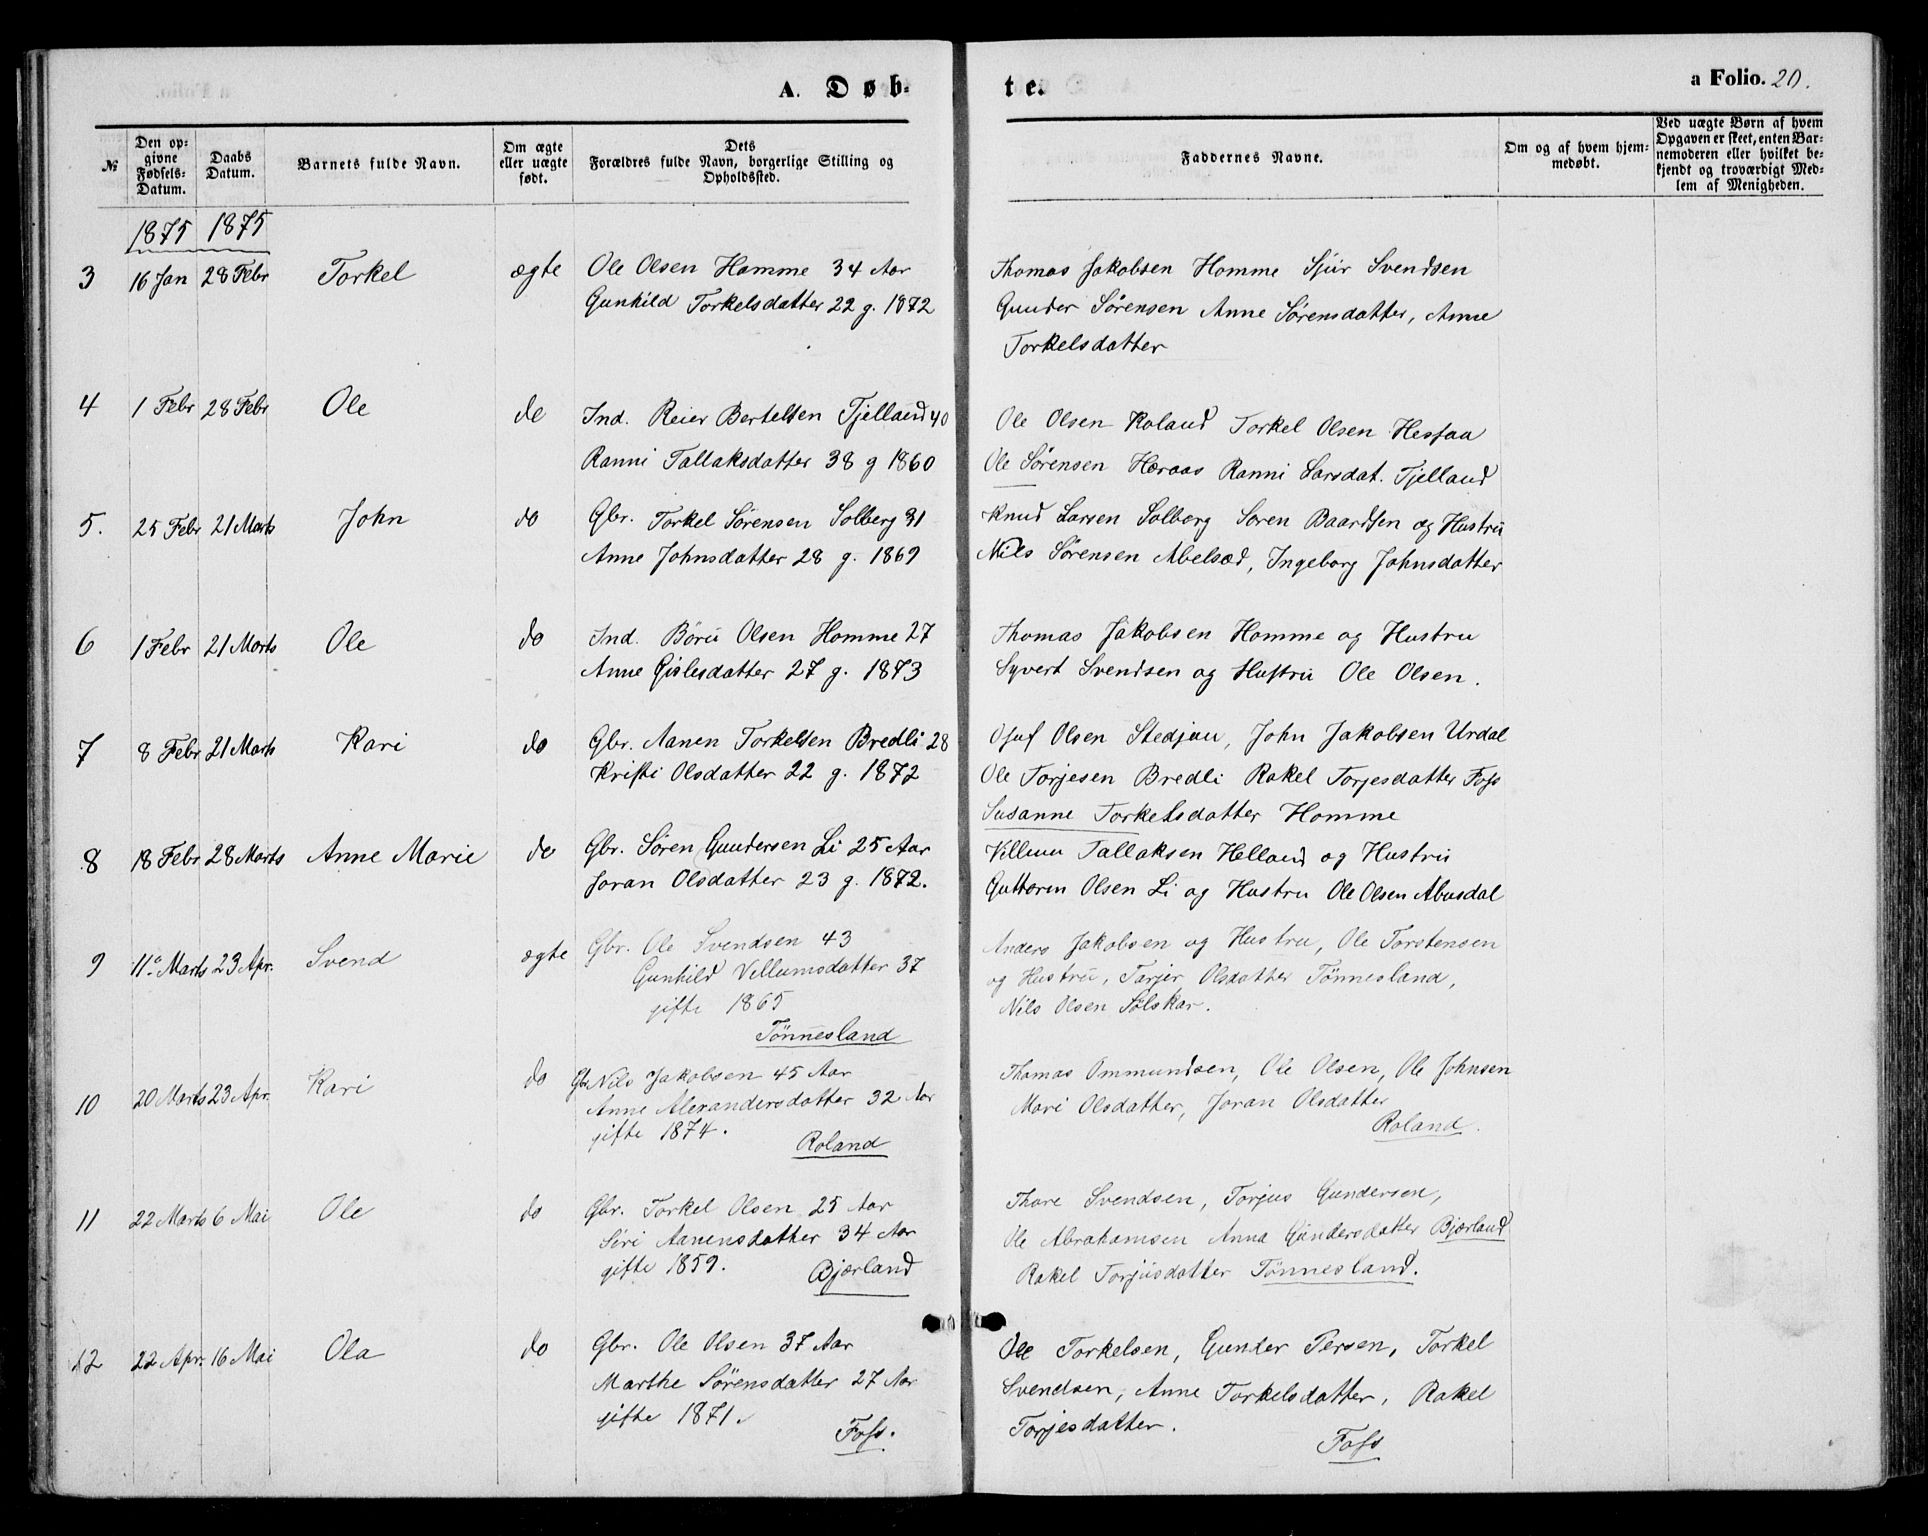 A. Døb-
te.
a Folio. 20.
№
Den op-
givne
Fødsels-
Datum.
Daabs
Datum.
Barnets fulde Navn.
Om ægte
eller uægte
født.
Dets
Forældres fulde Navn, borgerlige Stilling og
Opholdssted.
Faddernes Navne.
Om og af hvem hjem-
medøbt.
Ved uægte Børn af hvem
Opgaven er skeet, enten Bar-
nemoderen eller hvilket be-
kjendt og troværdigt Med-
lem af Menigheden.
1875 1875
3 16 Jan 28 Febr Torkel ægte Ole Olsen Homme 34 Aar
Gunhild Torkelsdatter 22 g. 1872
Thomas Jakobsen Homme Sjur Svendsen
Gunder Sørensen Anne Sørensdatter, Anne
Torkelsdatter
4 1 Febr 28 Febr Ole do Ind. Reier Bertelsen Tjelland 40
Ranni Tallaksdatter 38 g 1860
Ole Olsen Roland Torkel Olsen Hesfaa
Ole Sørensen Heraas Ranni Larsdat. Tjelland
5. 25 Febr 21 Marts John do Gbr. Torkel Sørensen Solberg 31
Anne Johnsdatter 28 g. 1869
Knud Larsen Solberg Søren Baardsen og Hustru
Nils Sørensen Abelsæd, Ingeborg Johnsdatter
6 1 Febr 21 Marts Ole do Ind. Børu Olsen Homme 27
Anne Gislesdatter 27 g. 1873
Thomas Jakobsen Homme og Hustru
Syvert Svendsen og Hustru Ole Olsen.
7 8 Febr 21 Marts Kari do Gbr. Aanen Torkelsen Bredli 28
Kristi Olsdatter 22 g. 1872
Osuf Olsen Stedjan, John Jakobsen Urdal
Ole Torjesen Bredli Rakel Torjesdatter Foss
Susanne Torkelsdatter Homme
8 18 Febr 28 Marts Anne Marie do Gbr. Søren Gundersen Li 25 Aar
Joran Olsdatter 23 g. 1872.
Villum Tallaksen Helland og Hustru
Guttorm Olsen Li og Hustru Ole Olsen Abusdal
9 11 Marts 23 Apr. Svend ægte Gbr. Ole Svendsen 43
Gunhild Villumsdatter 37
gifte 1865
Tønnesland
Anders Jakobsen og Hustru, Ole Torstensen
og Hustru, Tarjer Olsdatter Tønnesland,
Nils Olsen Sølskar.
10 20 Marts 23 Apr. Kari do Gbr Nils Jakobsen 45 Aar
Anne Alexandersdatter 32 Aar
gifte 1874.
Roland
Thomas Ommundsen, Ole Olsen, Ole Johnsen
Mari Olsdatter, Joran Olsdatter
Roland.
11 22 Marts 6 Mai Ole do Gbr. Torkel Olsen 25 Aar
Siri Aanensdatter 34 Aar
gifte 1859.
Bjørland
Thore Svendsen, Torjus Gundersen,
Ole Abrahamsen Anna Gundersdatter Bjørland
Rakel Torjusdatter Tønnesland.
12 22 Apr. 16 Mai Ola do Gbr. Ole Olsen 37 Aar
Marthe Sørensdatter 27 Aar
gifte 1871.
Foss.
Ole Torkelsen, Gunder Persen, Torkel
Svendsen, Anne Torkelsdatter, Rakel
Torjesdatter.
Foss